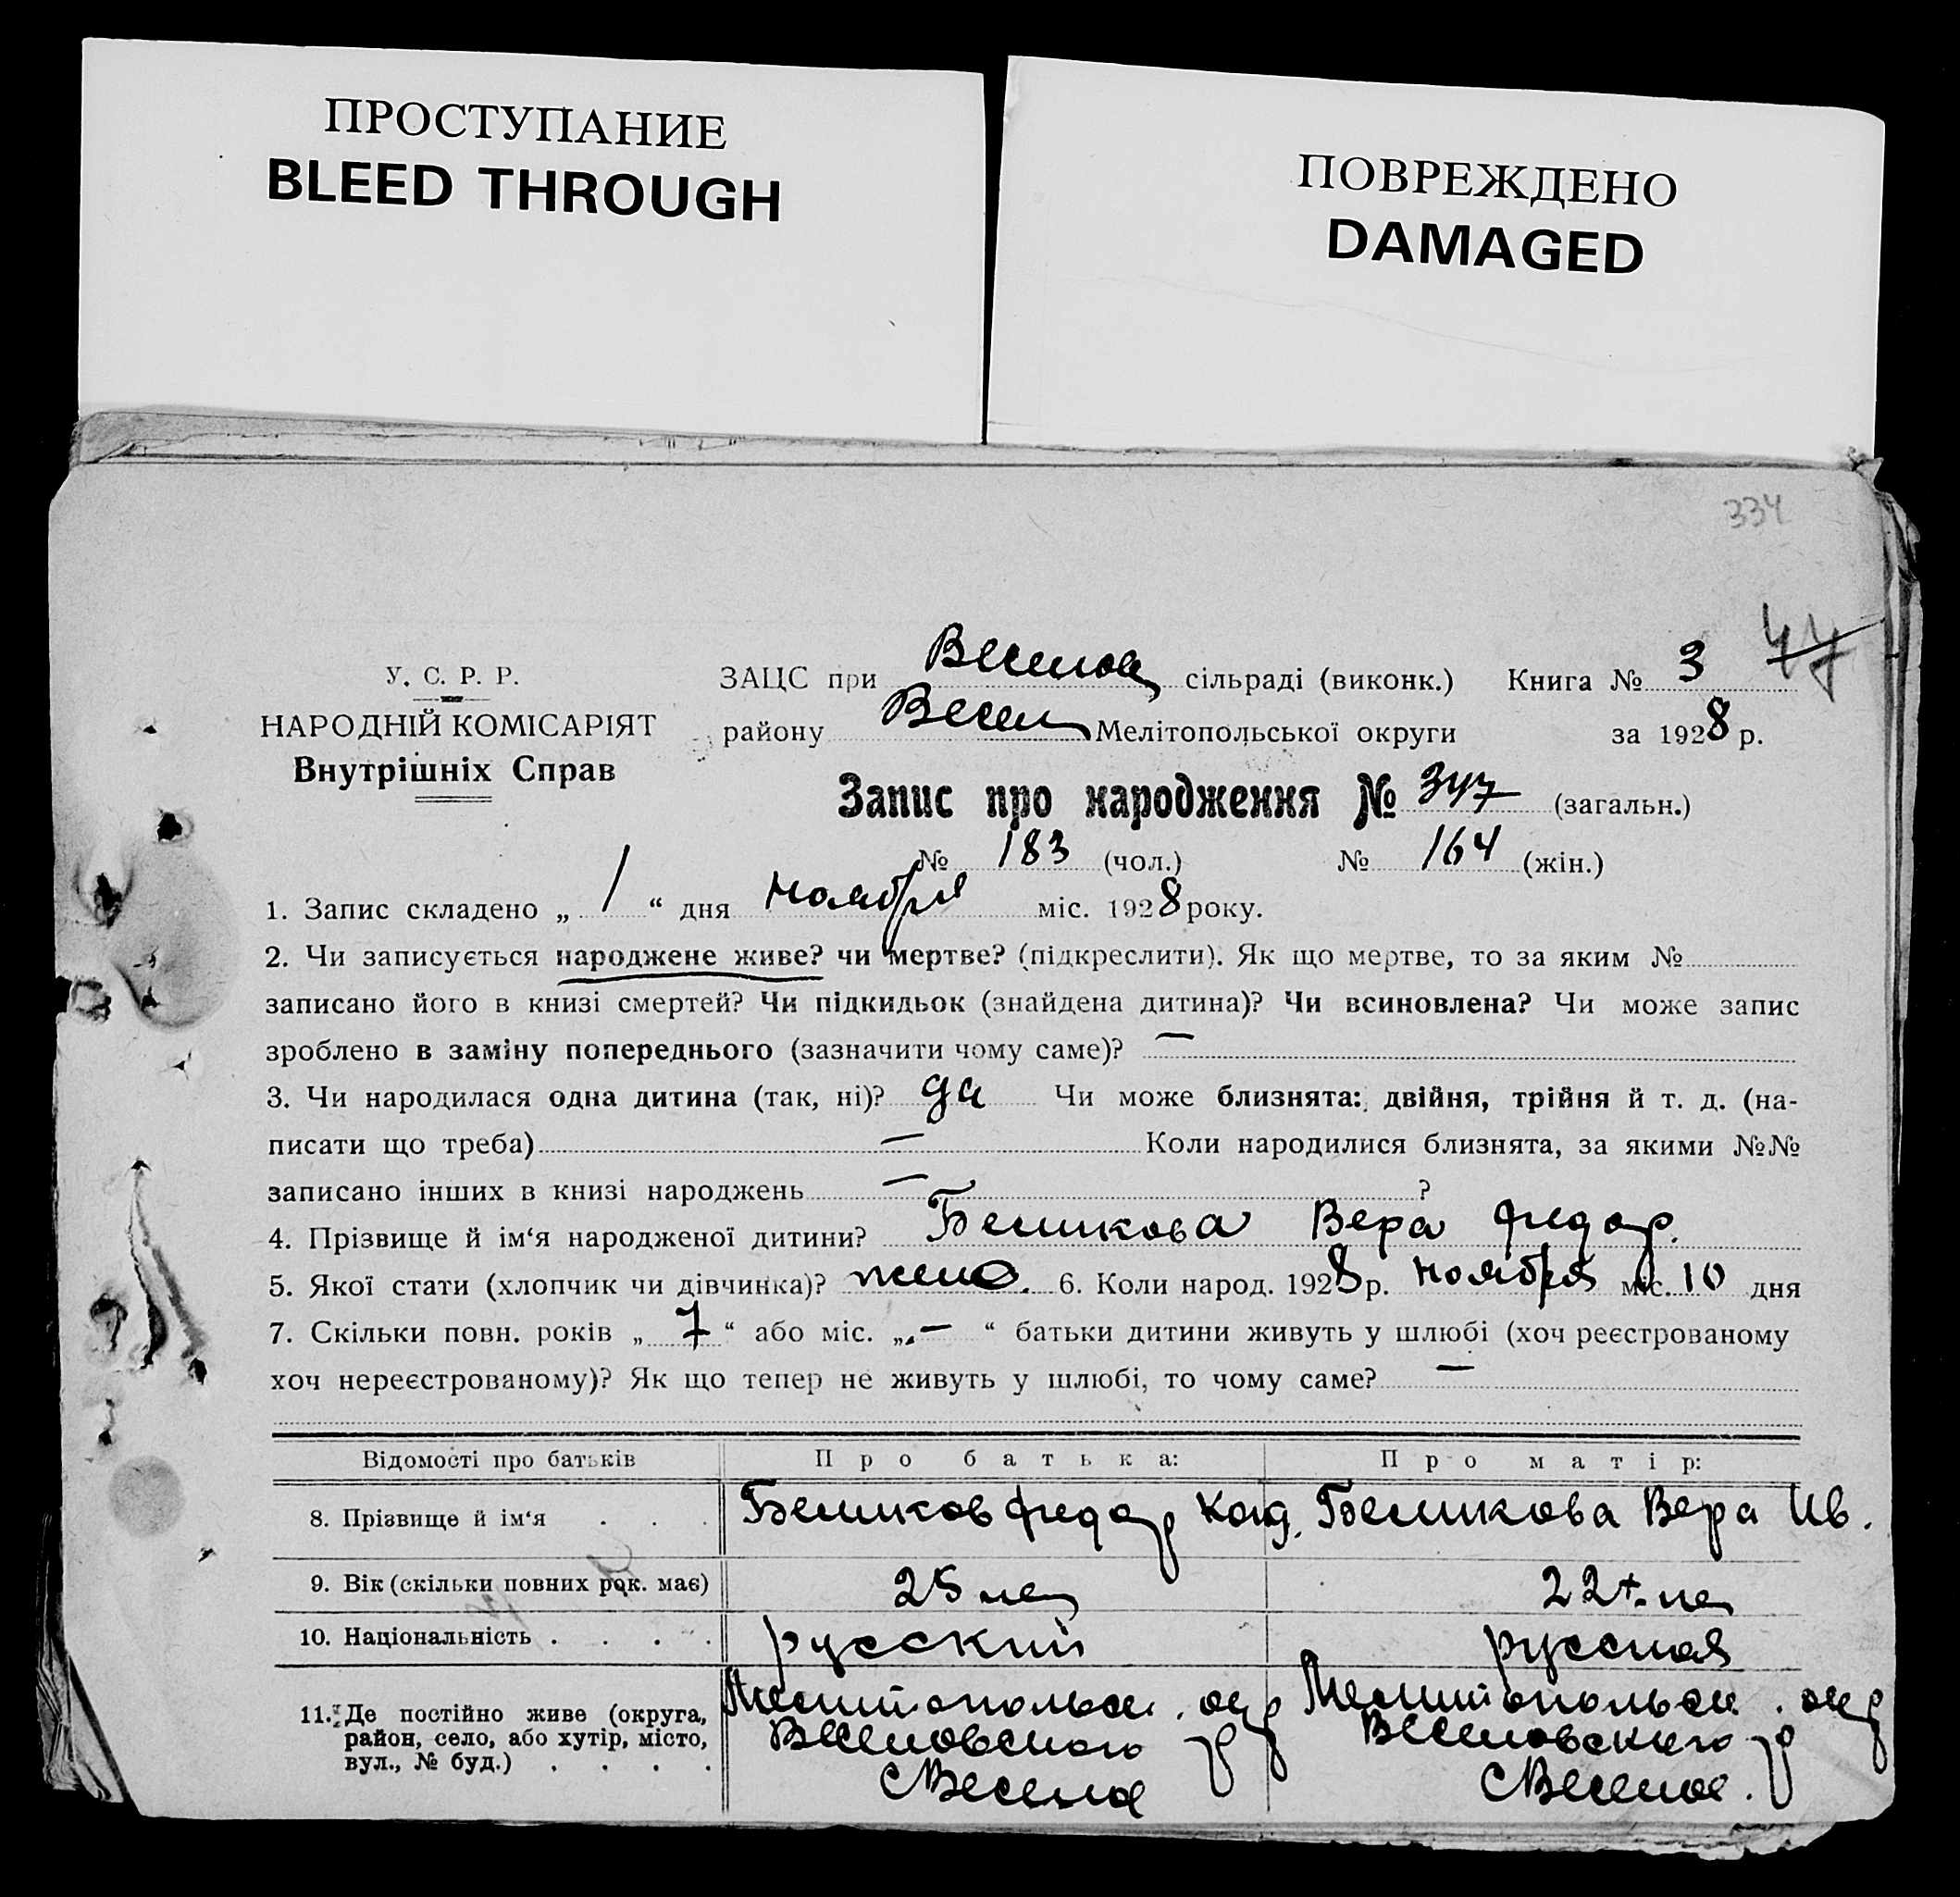 ПРОСТУПАНИЕ
BLEED THROUGH
ПОВРЕЖДЕНО
DAMAGED
334
У. С. Р. Р.
НАРОДНІЙ КОМІСАРІЯТ
Внутрішніх Справ
ЗАЦС при Веселов сільраді (виконк.) Книга № 3 47
району Весел Мелітопольської округи за 1928 р.
Запис про народження № 347 (загальн.)
№ 183 (чол.) № 164 (жін.)
1. Запис складено „ 1 “ дня Ноября міс. 1928 року.
2. Чи записується народжене живе? чи мертве? (підкреслити). Як що мертве, то за яким №
записано його в книзі смертей? Чи підкидьок (знайдена дитина)? Чи всиновлена? Чи може запис
зроблено в заміну попереднього (зазначити чому саме)? —
3. Чи народилася одна дитина (так, ні)? да Чи може близнята: двійня, трійня й т. д. (на-
писати що треба) — Коли народилися близнята, за якими №№
записано інших в книзі народжень — ?
4. Прізвище й ім‘я народженої дитини? Беликова Вера Федор.
5. Якої стати (хлопчик чи дівчинка)? 6. Коли народ. 1928 р. Ноября міс. 10 дня
7. Скільки повн. років „ 7 “ або міс. „ — “ батьки дитини живуть у шлюбі (хоч реєстрованому
хоч нереєстрованому)? Як що тепер не живуть у шлюбі, то чому саме? —
Відомості про батьків Про батька: Про матір:
8. Прізвище й ім‘я . . . Беликов Федор Беликова Вера Ив.
9. Вік (скільки повних рок. має) 25 лет 22 лет
10. Національність . . . . русский русская
11. Де постійно живе (округа, Мелитопольск. окр Мелитопольск. окр
район, село, або хутір, місто, Веселовского р Веселовского р
вул., № буд.) . . . . с Веселое с Веселое.